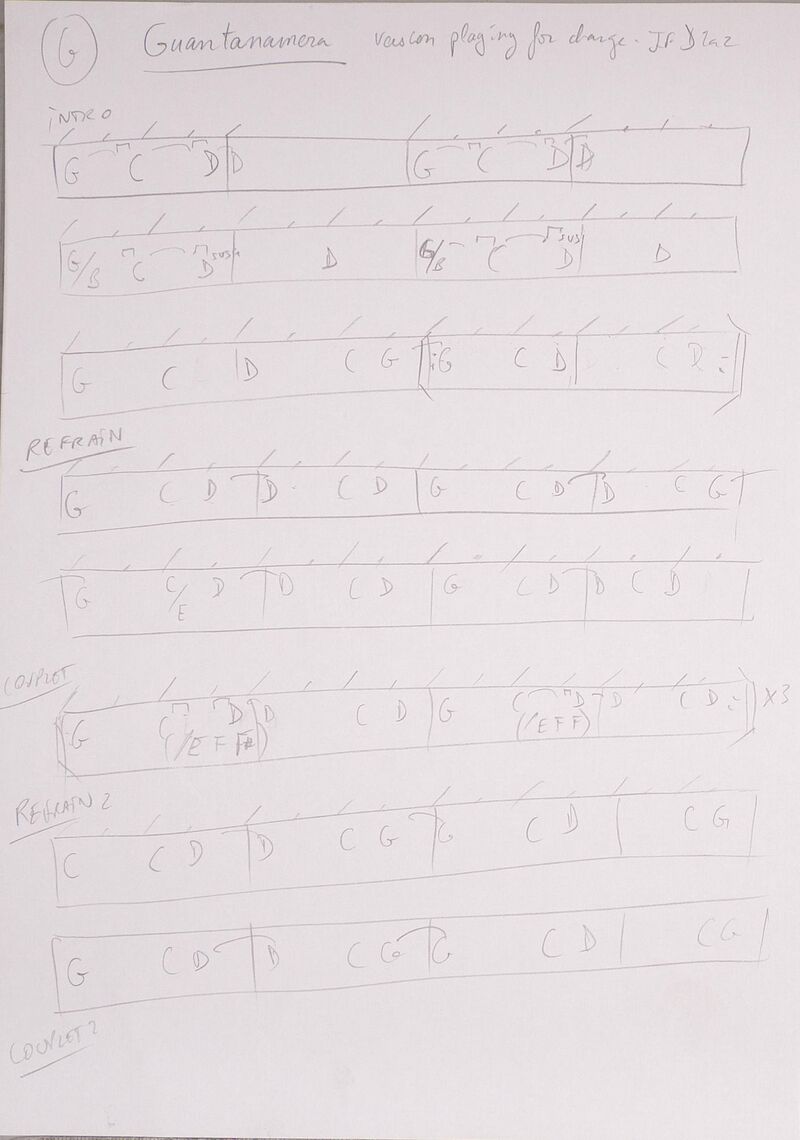 G Guantanamera version playing for change.
INTRO
G C D D G C D D
G/B C Dsus4 D G/B C Dsus D
G C D C G G C D C D
REFRAIN
G C D D C D G C D D C G
G C/E D D C D G C D D C D
COUPLET
G C D D C D G C D D C D X3
(/E F F#) (/E F F)
REFRAIN 2
C C D D C G G C D C G
G C D D C G G C D C G
COUPLET 2